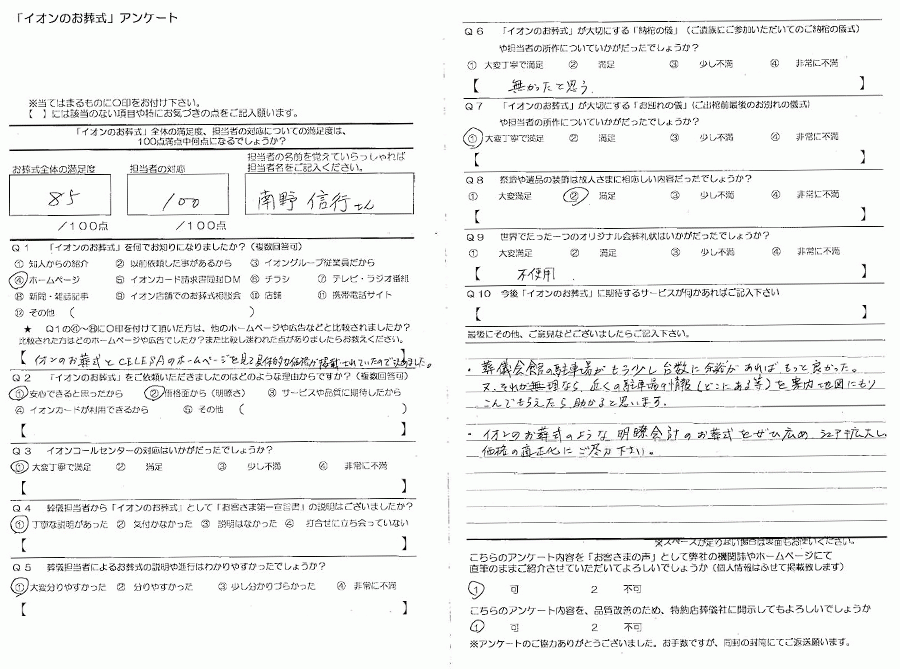 「イオンのお葬式」アンケート
※当てはまるものに〇印をお付け下さい。
【 】には該当のない項目や特にお気づきの点をご記入願います。
「イオンのお葬式」全体の満足度、担当者の対応についての満足度は、
100点満点中何点になるでしょうか?
お葬式全体の満足度
担当者の対応
担当者の名前を覚えていらっしゃれば
担当者名をご記入ください。
85
100
南野 信行さん
/100点
/100点
Q1 「イオンのお葬式」を何でお知りになりましたか?(複数回答可)
① 知人からの紹介 ② 以前依頼した事があるから ③ イオングループ従業員だから
④ ホームページ ⑤ イオンカード請求書同封DM ⑥ チラシ ⑦ テレビ・ラジオ番組
⑧ 新聞・雑誌記事 ⑨ イオン店舗でのお葬式相談会 ⑩ 店頭 ⑪ 携帯電話サイト
⑫ その他 ( )
★ Q1の④~⑧に〇印を付けて頂いた方は、他のホームページや広告などと比較されましたか?
比較された方はどのホームページや広告でしたか?また比較し迷われた点がありましたらお教えください。
【 イオンのお葬式とCELEPAのホームページを見て具体的な価格が掲載されていたので決めました。 】
Q2 「イオンのお葬式」をご依頼いただきましたのはどのような理由からですか?(複数回答可)
① 安心できると思ったから ② 価格面から(明瞭さ) ③ サービスや品質に期待したから
④ イオンカードが利用できるから ⑤ その他 ( )
【 】
Q3 イオンコールセンターの対応はいかがだったでしょうか?
① 大変丁寧で満足 ② 満足 ③ 少し不満 ④ 非常に不満
【 】
Q4 葬儀担当者から「イオンのお葬式」として「お客さま第一宣言書」の説明はございましたか?
① 丁寧な説明があった ② 気付かなかった ③ 説明はなかった ④ 打合せに立ち会っていない
【 】
Q5 葬儀担当者によるお葬式の説明や進行はわかりやすかったでしょうか?
① 大変分りやすかった ② 分りやすかった ③ 少し分かりづらかった ④ 非常に不満
【 】
Q6 「イオンのお葬式」が大切にする「納棺の儀」(ご遺族にご参加いただいてのご納棺の儀式)
や担当者の所作についていかがだったでしょうか?
① 大変丁寧で満足 ② 満足 ③ 少し不満 ④ 非常に不満
【 無かったと思う。 】
Q7 「イオンのお葬式」が大切にする「お別れの儀」(ご出棺前最後のお別れの儀式)
や担当者の所作についていかがだったでしょうか?
① 大変丁寧で満足 ② 満足 ③ 少し不満 ④ 非常に不満
【 】
Q8 祭壇や遺品の装飾は故人さまに相応しい内容だったでしょうか?
① 大変満足 ② 満足 ③ 少し不満 ④ 非常に不満
【 】
Q9 世界でたった一つのオリジナル会葬礼状はいかがだったでしょうか?
① 大変満足 ② 満足 ③ 少し不満 ④ 非常に不満
【 不使用 】
Q10 今後「イオンのお葬式」に期待するサービスが何かあればご記入下さい
【 】
最後にその他、ご意見などございましたらご記入下さい。
・葬儀会館の駐車場がもう少し台数に余裕があれば、もっと良かった。
又、それが無理なら、近くの駐車場の情報(どこにある等)を案内地図にもり
こんでもらえたら助かると思います。
・イオンのお葬式のような明瞭会計のお葬式をぜひ広め、シェア拡大し
価格の適正化にご尽力下さい。
※スペースが足りない場合は裏面もお使いください。
こちらのアンケート内容を「お客さまの声」として弊社の機関誌やホームページにて
直筆のままご紹介させていただいてよろしいでしょうか(個人情報はふせて掲載致します)
1 可 2 不可
こちらのアンケート内容を、品質改善のため、特約店葬儀社に開示してもよろしいでしょうか
1 可 2 不可
※アンケートのご協力ありがとうございました。お手数ですが、同封の封筒にてご返送願います。